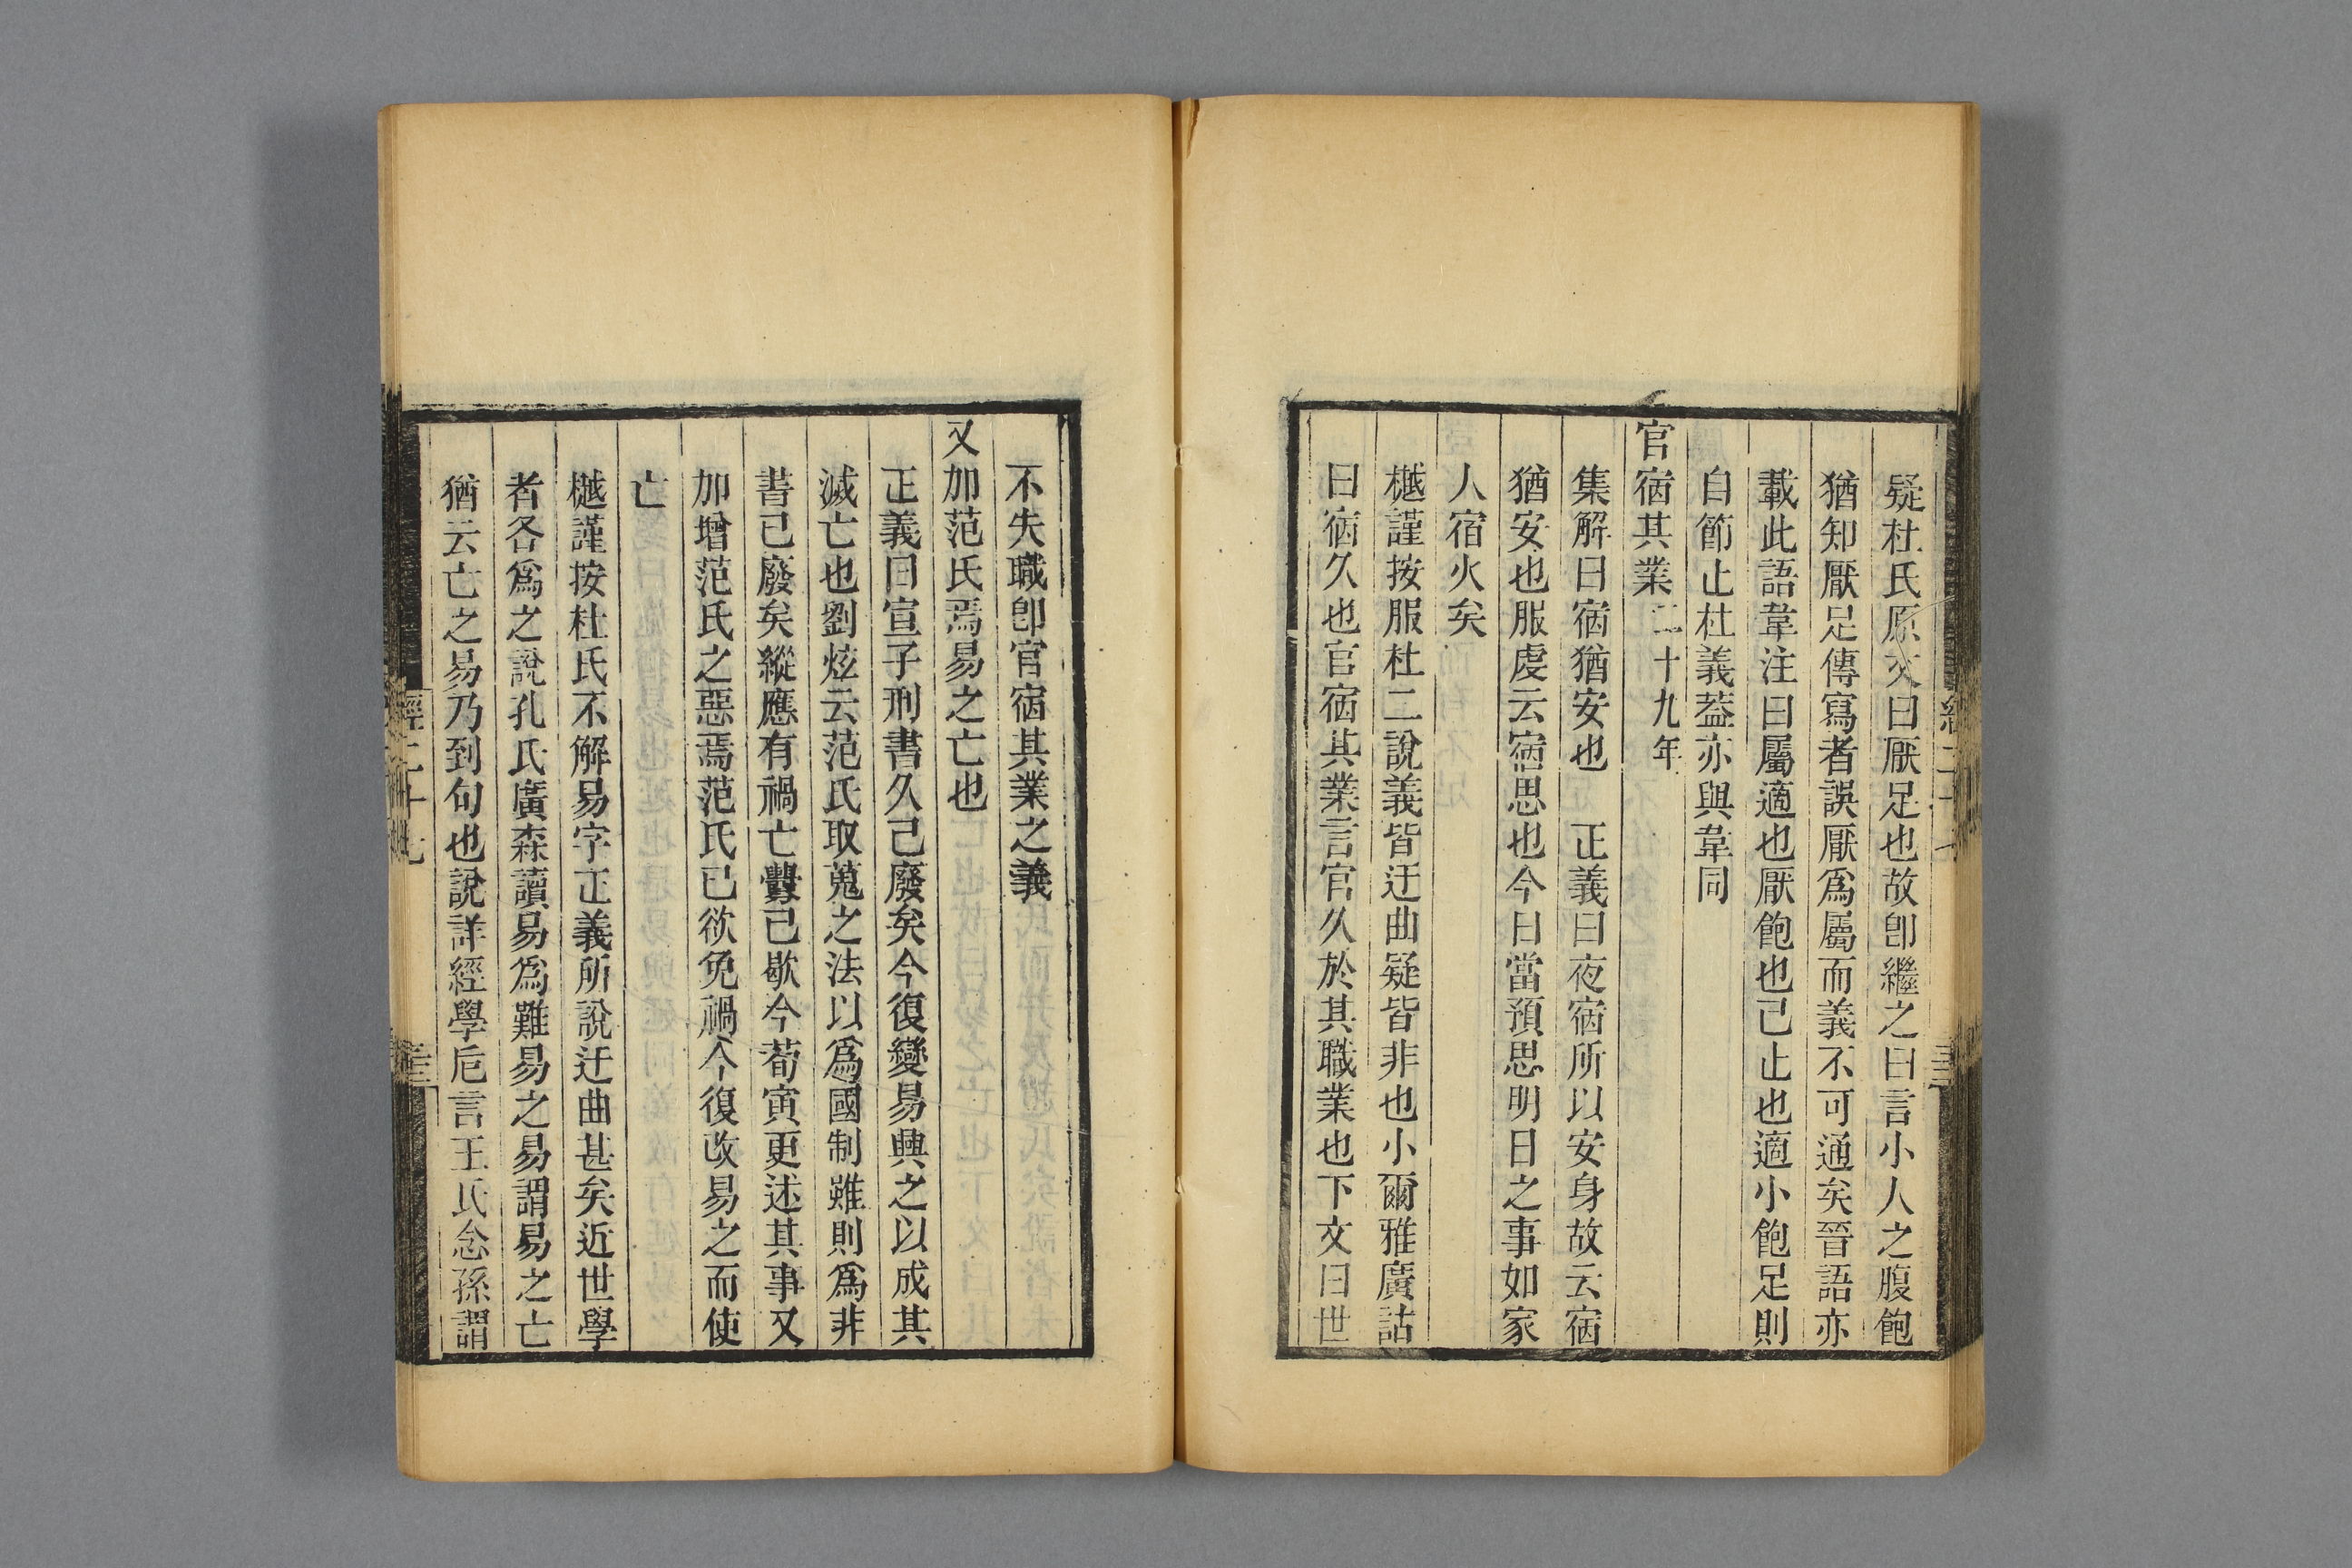 疑杜氏原文曰厭足也故卽繼之曰言小人之腹飽
猶知厭足傳寫者誤厭爲屬而義不可通矣晉語亦
載此語韋注曰屬適也厭飽也已止也適小飽足則
自節止杜義葢亦與韋同
官宿其業二十九年
集解曰宿猶安也　正義曰夜宿所以安身故云宿
猶安也服虔云宿思也今日當預思明日之事如家
人宿火矣
樾謹按服杜二說義皆迂曲疑皆非也小爾雅廣詁
曰宿久也官宿其業言官久於其職業也下文曰世
不失職卽官宿其業之義
又加范氏焉易之亡也
正義曰宣子刑書久已廢矣今復變易興之以成其
滅亡也劉炫云范氏取蒐之法以爲國制雖則爲非
書已廢矣縱應有禍亡釁已歇今荀寅更述其事又
加增范氏之惡焉范氏已欲免禍今復改易之而使
亡
樾謹按杜氏不解易字正義所說迂曲甚矣近世學
者各爲之說孔氏廣森讀易爲難易之易謂易之亡
猶云亡之易乃到句也說詳經學卮言王氏念孫謂
經二十七